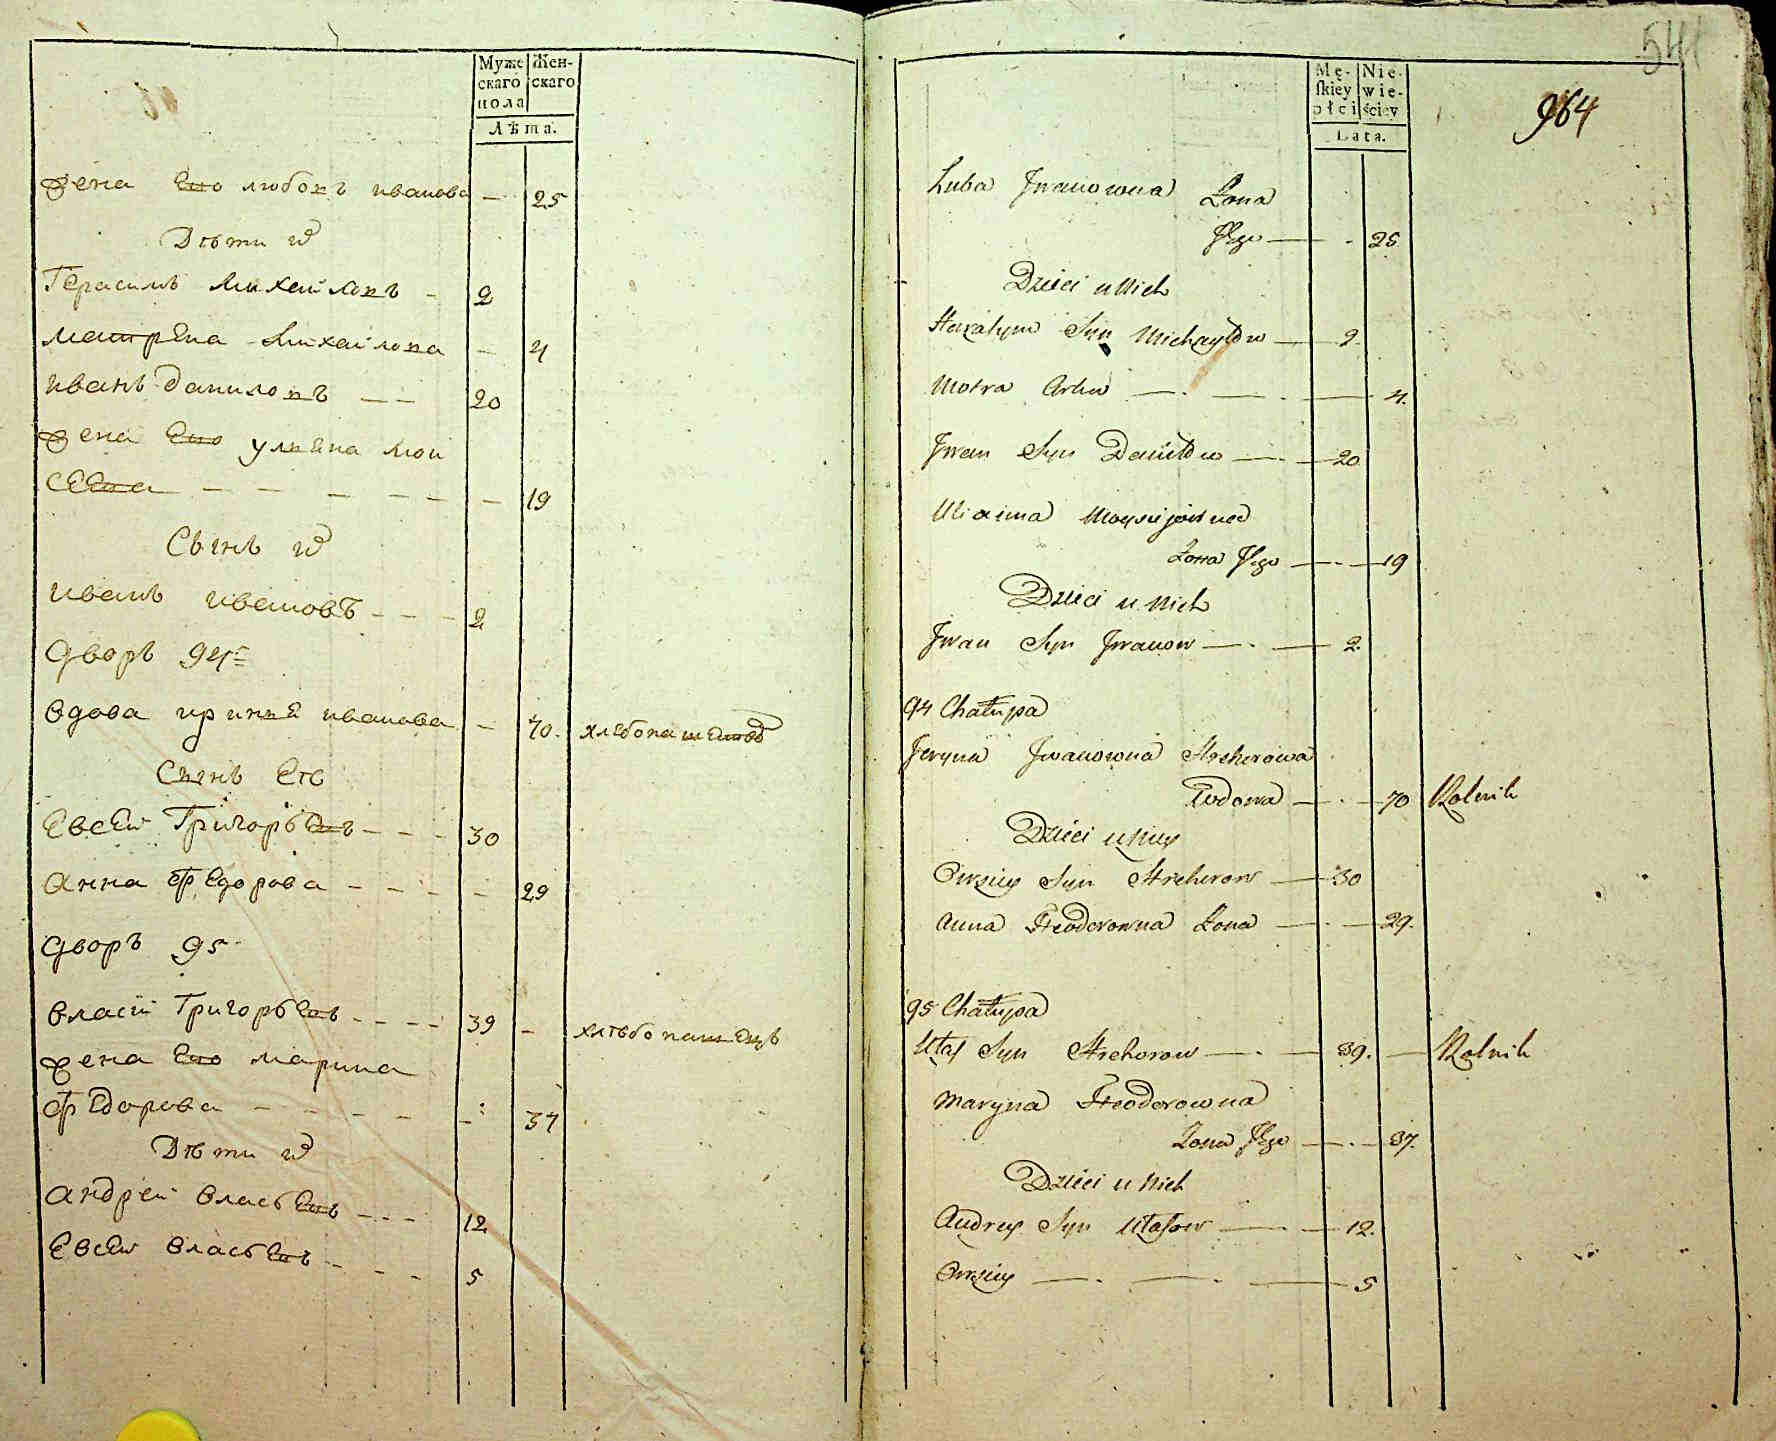 Муже
скаго
пола
Жен-
скаго
Лѣта.
жена Его любовъ иванова — 25
Дѣти и͠
Герасимъ Михайловъ - 2
матрЕна Михайлова — 4
иванъ даниловъ — — 20
жена Его ульяна мои
сЕЕва — — — — — — 19
Сынъ и͠
иванъ ивановъ - - - 2
дворъ 94-
вдова ирина иванова — 70. хлЕбопашец
Сынъ Ев
ЕвсЕй ГригорьЕвъ - - - 30
анна фЕдорова - - - - 29
дворъ 95-
власій ГригорьЕвъ - - - - 39 - хлѣбопашЕцъ
жена Его марина
фЕдорова - - - - - 37
Дѣти и͠
андрей власьЕвъ - - - 12
ЕвсЕй власьЕвъ - - - 5
541
Mę-
skiey
płci
Nie-
wie-
ściey
Lata.
964
Luba Jwanowna Żona
Jego — - 25
Dzieci u Nich
Harasym Syn Michayłów — 2.
Motra Córka — . — — 4.
Jwan Syn Daniłów — . — 20
Uliaima Moysiejówna
Żona Jego — . — 19
Dzieci u Nich
Jwan Syn Jwanow — . — 2.
94 Chałupa
Jeryna Jwanowna Hrehorowa
Wdowa — . — 70 Rolnik
Dzieci u Niey
Owsiey Syn Hrehorow — 30
Anna Fieodorowna Żona — . — 29.
95 Chałupa
Ułas Syn Hrehorow — . — 39. — Rolnik
Maryna Fieodorowna
Żona Jego — . — 37.
Dzieci u Nich
Andrey Syn Ułasow — . — 12.
Owsiey — . — . — 5